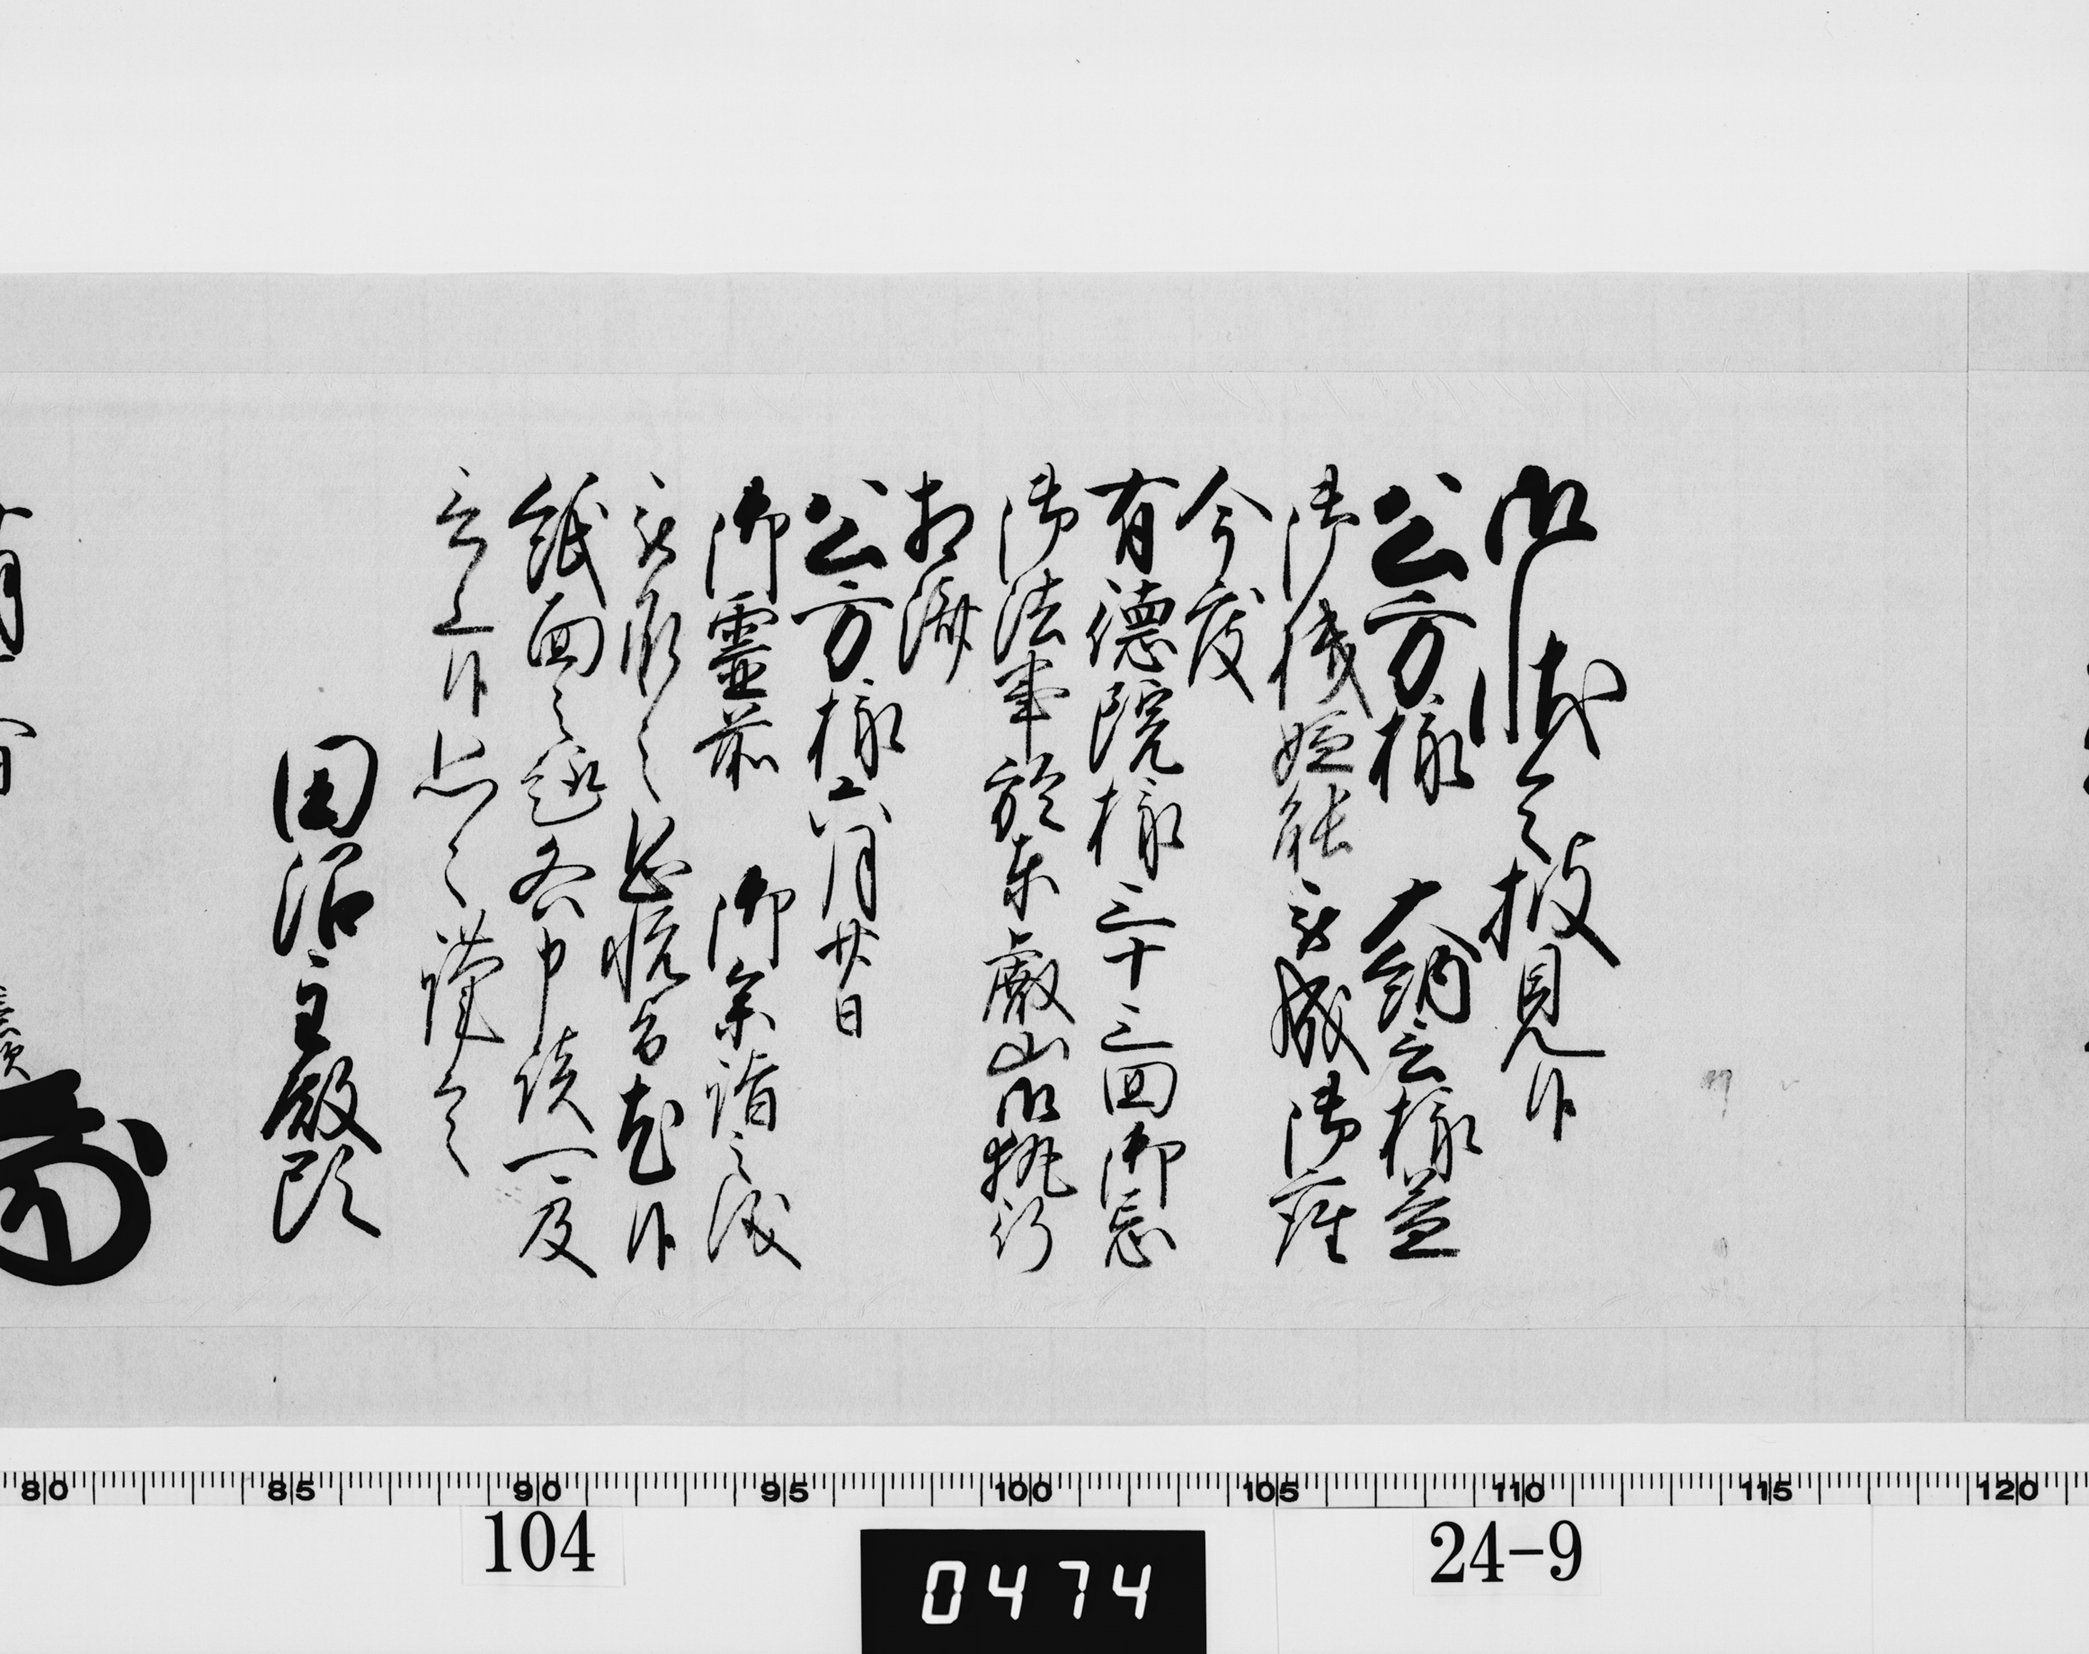 御状令披見候
公方様 大納言様益
御機嫌能被成御座
今度
有徳院様三十三回御忌
御法事於東叡山御執行
相済
公方様六月廿日
御霊前 御参詣之段
被承之恐悦旨尤候
紙面之趣各申談一同及
言上候恐々謹言
田沼主殿頭
80 85 90 95 100 105 110 115 120
104
0474
24-9